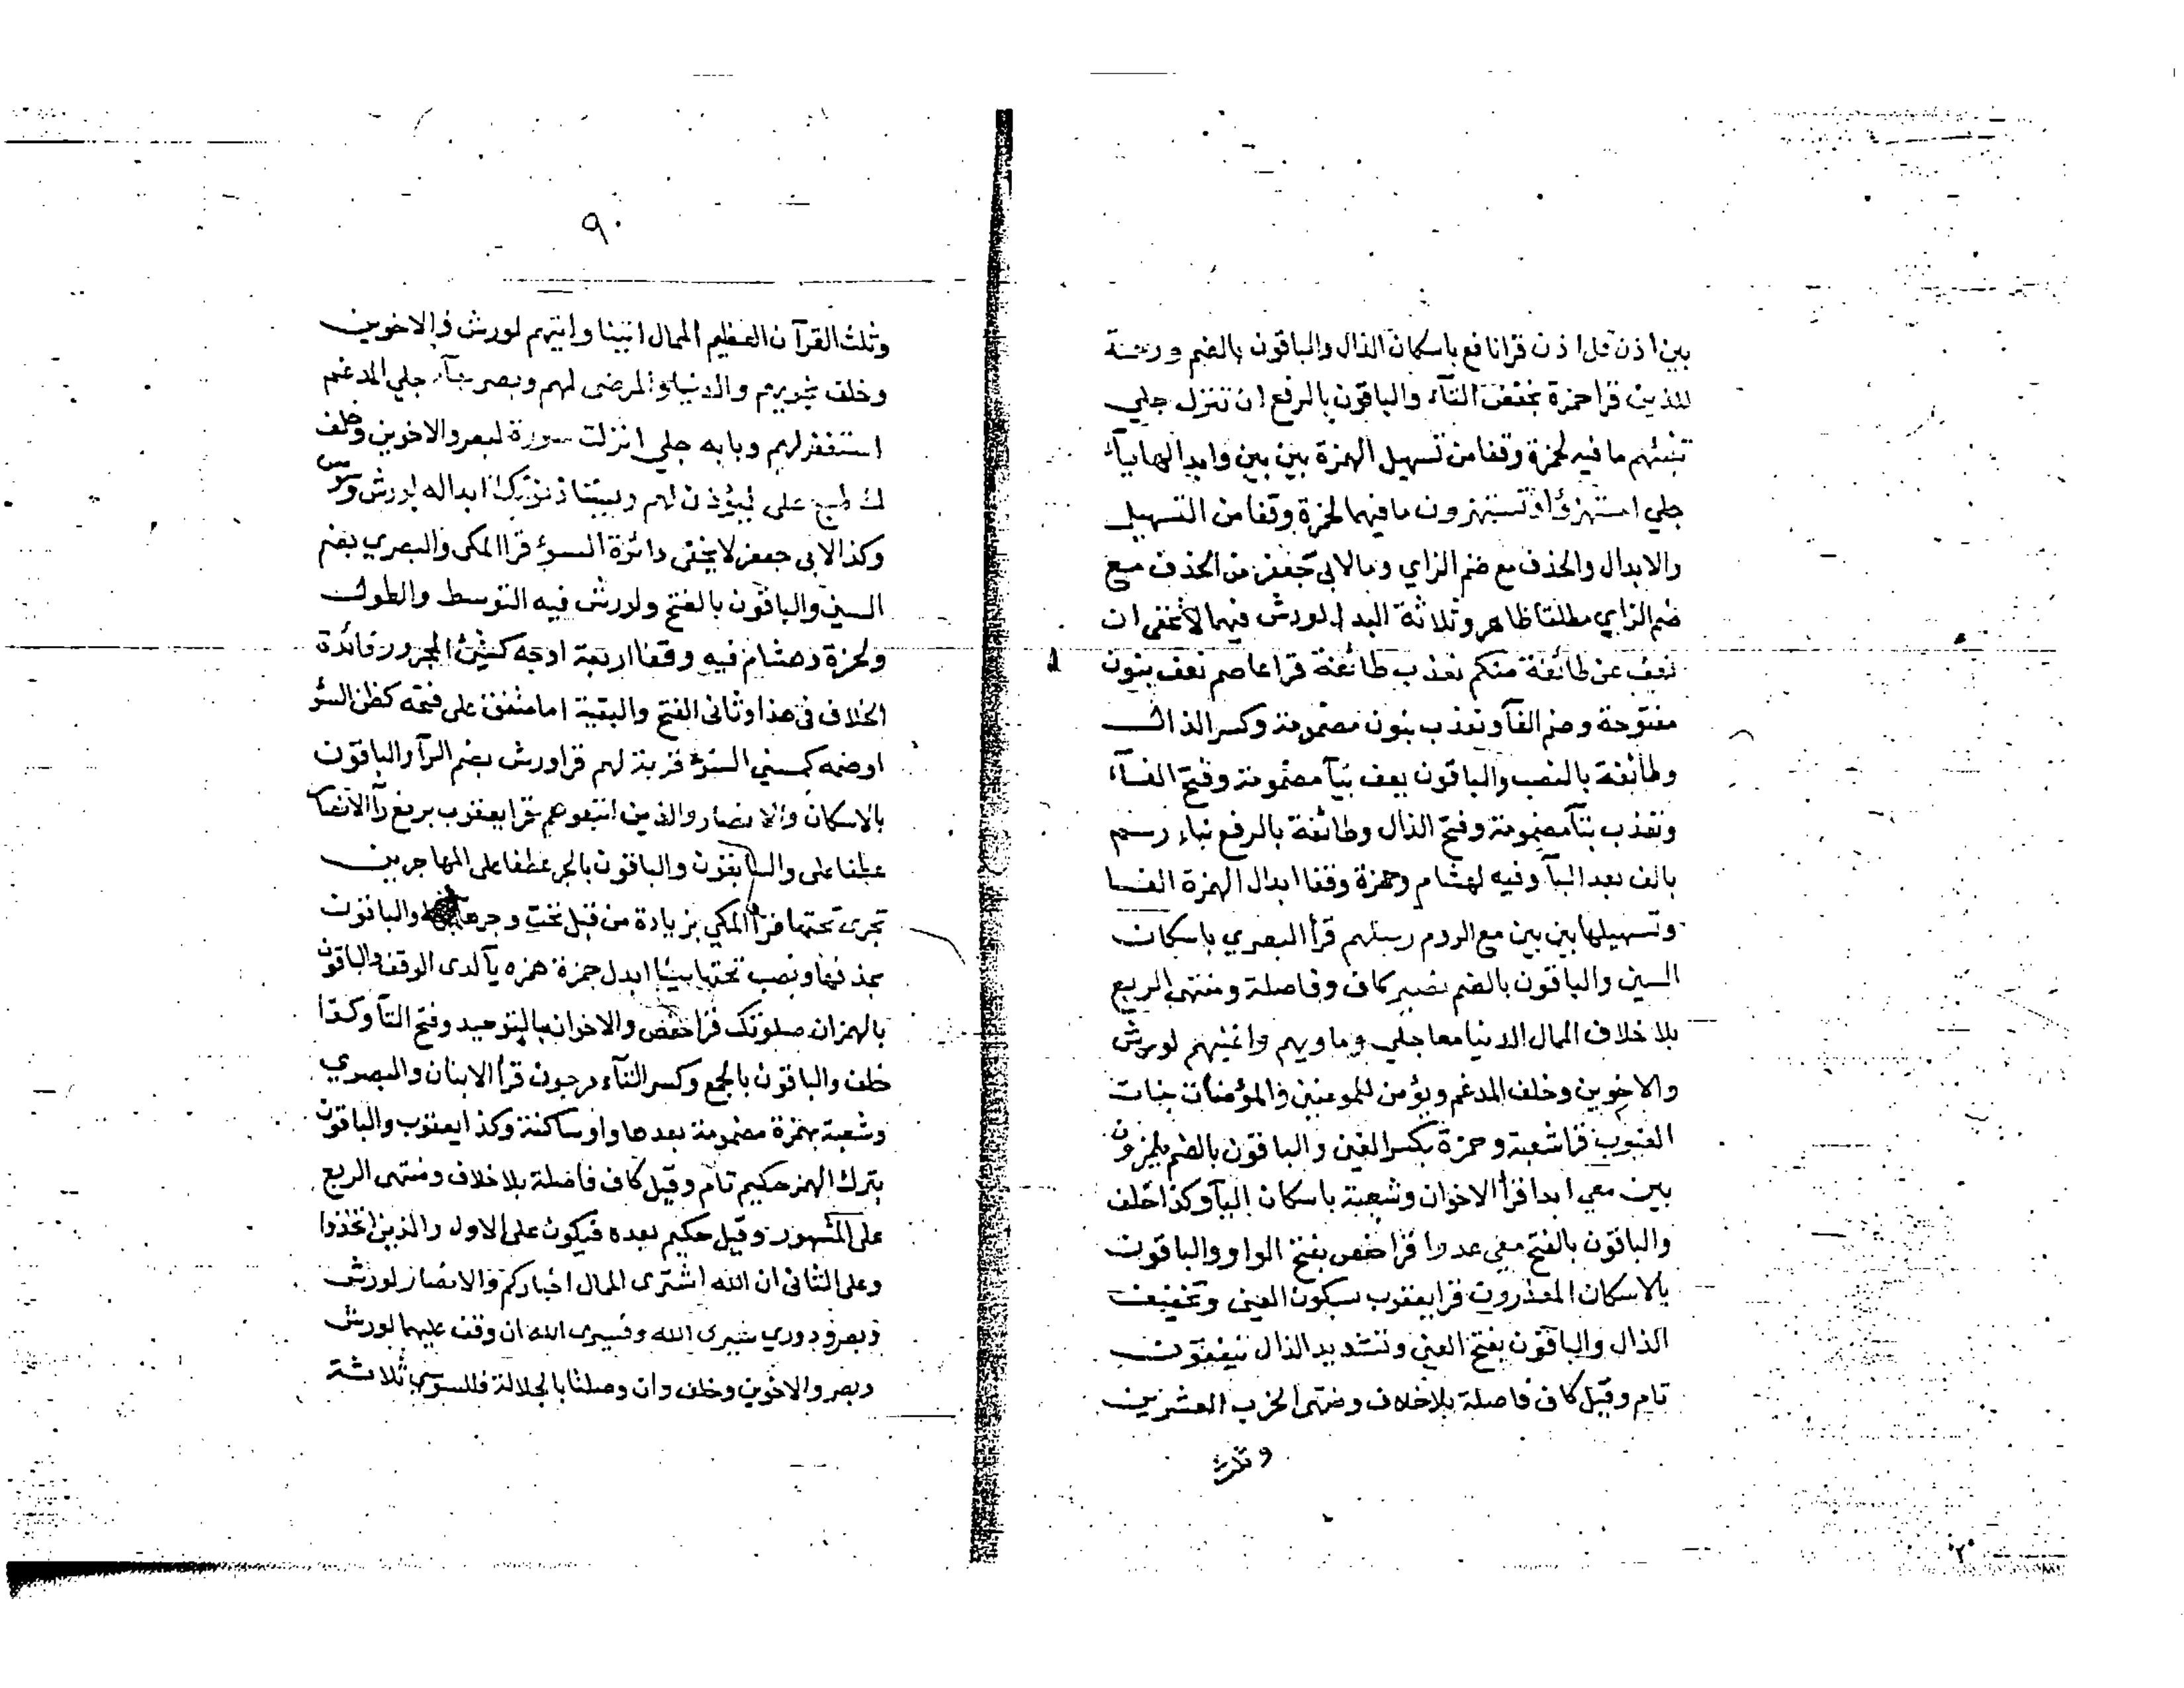 بين اذن قل اذن قرا نافع باسكان الذال والباقون بالضم ورحمة
للذين قرا حمزة بخفض التآء والباقون بالرفع ان تنزل جلي
تنبئهم ما فيه لحمزة وقفا من تسهيل الهمزة بين بين وابدالها يآء
جلي استهزؤا وتستهزون ما فيهما لحمزة وقفا من التسهيل
والابدال والحذف مع ضم الزاي وما لابي جعفر من الحذف مع
ضم الزاي مطلقا ظاهر وثلاثة البدل لورش فيهما لا تخفى ان
نعف عن طائفة منكم نعذب طائفة قرا عاصم نعف بنون
مفتوحة وضم الفآ ونعذب بنون مضمومة وكسر الذال
وطائفة بالنصب والباقون يعف بيآ مضمومة وفتح الفآء
وتعذب بتآ مضمومة وفتح الذال وطائفة بالرفع نباء رسم
بالف بعد البآ وفيه لهشام وحمزة وقفا ابدال الهمزة الفا
وتسهيلها بين بين مع الروم رسلهم قرأ البصري باسكان
السين والباقون بالضم نصير كاف وفاصلة ومنتهى الربع
بلا خلاف الممال الدنيا معا جلي وماويهم واغنيهم لورش
والاخوين وخلف المدغم ويؤمن للمومنين والمؤمنات جنات
الغيوب قرا شعبة وحمزة بكسر الغين والباقون بالضم يلمزون
بين معي ابدا قرأ الاخوان وشعبة باسكان اليآ وكذا خلف
والباقون بالفتح معي عدوا قرا حفص بفتح الواو والباقون
بالاسكان المعذرون قرا يعقوب بسكون العين وتخفيف
الذال والباقون بفتح العين وتشديد الذال ينفقون
تام وقيل كاف فاصلة بلا خلاف ومنتهى الحزب العشرين
وثلث
٩٠
وثلث القرآن العظيم الممال اتينا واتيهم لورش والاخوين
وخلف نجويهم والدنيا والمرضى لهم وبصر جآء جلي المدغم
استغفر لهم وبابه جلي انزلت سورة لبصر والاخوين وخلف
ك طبع على ليؤذن لهم يستاذنونك ابداله لورش وسوس
وكذا لابي جعفر لا يخفى دائرة السوء قرا المكي والبصري بضم
السين والباقون بالفتح ولورش فيه التوسط والطول
ولحمزة وهشام فيه وقفا اربعة اوجه كشئ المجرور فائدة
الخلاف في هذا وثاني الفتح والبقية اما متفق على فتحه كظن السوء
او ضمه كمسني السوء قربة لهم قرا ورش بضم الرآ والباقون
بالاسكان والانصار والذين اتبعوهم قرا يعقوب برفع رآ الانصار
عطفا على والسابقون والباقون بالجر عطفا على المهاجرين
تجرى تحتها قرأ المكي بزيادة من قبل تحت وجرها والباقون
بحذفها ونصب تحتها سيئا ابدل حمزة همزه يآ لدى الوقف والباقون
بالهمز ان صلوتك قرا حفص والاخوان بالتوحيد وفتح التآ وكذا
خلف والباقون بالجمع وكسر التآء مرجون قرأ الابنان والبصري
وشعبة بهمزة مضمومة بعدها واو ساكنة وكذا يعقوب والباقون
بترك الهمز حكيم تام وقيل كاف فاصلة بلا خلاف ومنتهى الربع
على المشهور وقيل حكيم بعده فيكون على الاول والذين اتخذوا
وعلى الثاني ان الله اشترى الممال اخباركم والانصار لورش
وبصر ودوري سيرى الله وفسيرى الله ان وقف عليهما لورش
وبصر والاخوين وخلف وان وصلتا بالجلالة فللسوسي ثلاثة